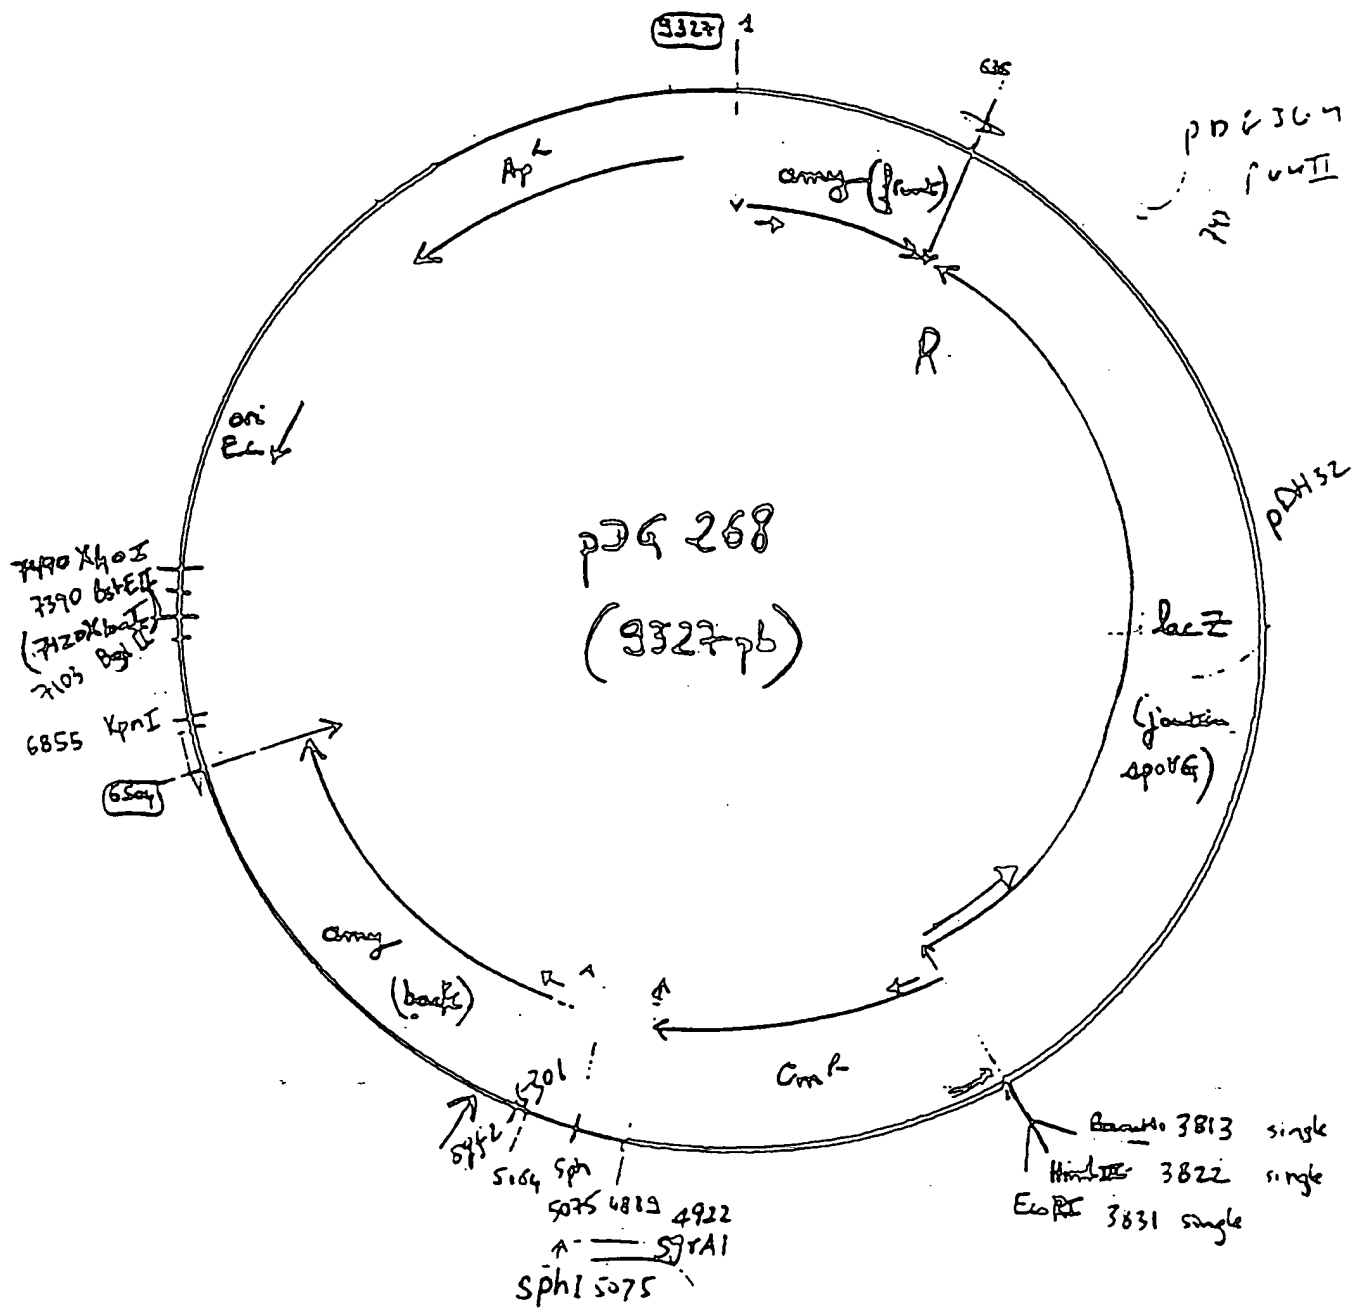 9327 1
636
Ap
amy (front)
pDH32
R
ori
Ec
pDG 268
(9327 pb)
lacZ
(jonction
spoVG)
7490 XhoI
7390 bstEII
(7120 XbaI)
7103 BglII
6855 KpnI
6504
amy
(back)
Cm
301
5164
Sph
5075 4889
4922
SgrAI
SphI 5075
BamHI 3813 single
HindIII 3822 single
EcoRI 3831 single